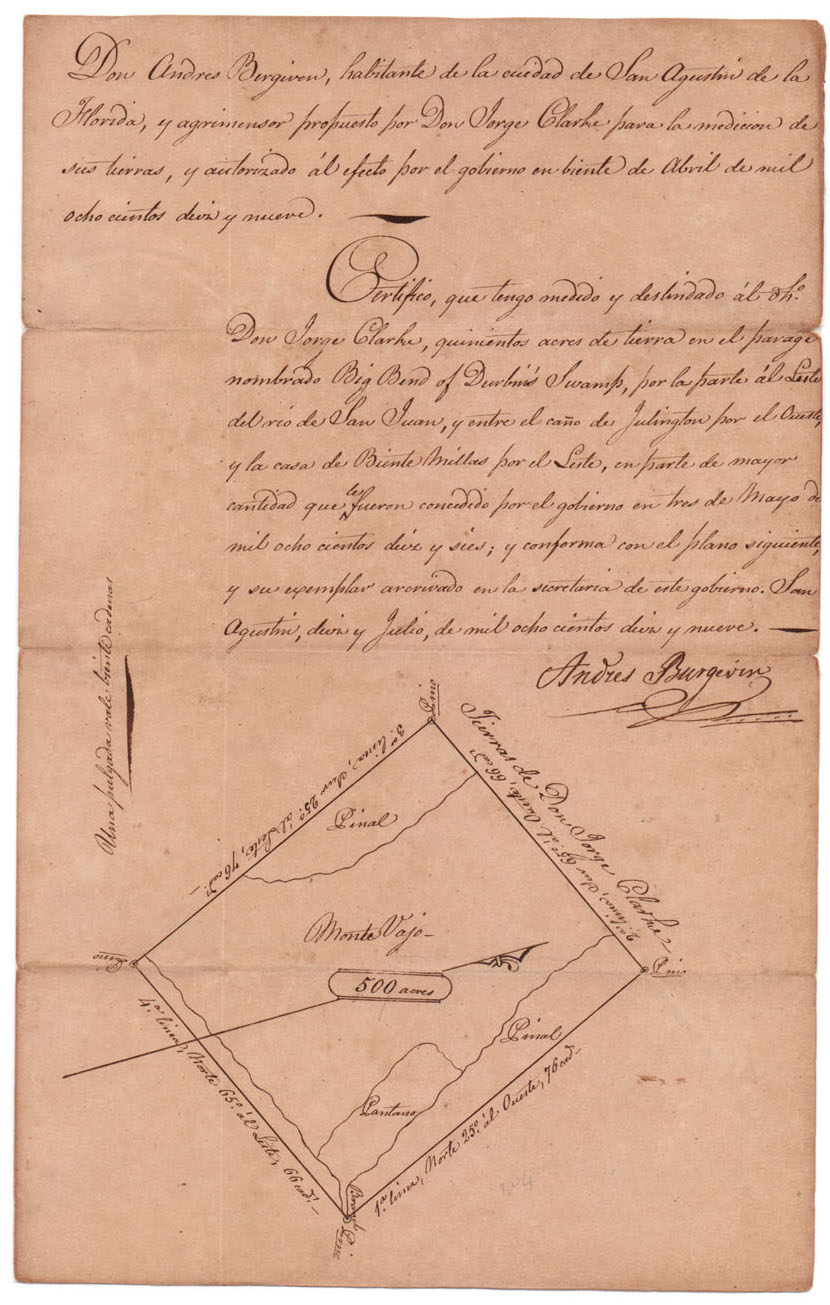 Don Andres Bergiven, habitante de la cuidad de San Agustin de la
Florida, y agrimensor propuesto por Don Jorge Clarke para la medicion de
sus tierras, y autorizado ál efecto por el gobierno en biente de Abril de mil
ocho cientos diez y nueve.
Certifico, que tengo medido y deslindado ál dho.
Don Jorge Clarke, quinientos acres de tierra en el parage
nombrado Big Bend of Durbin's Swamp, por la parte ál Leste
del rio de San Juan, y entre el caño de Julington por el Oueste,
y la casa de Biente Millas por el Leste, en parte de mayor
cantidad que le fueron concedido por el gobierno en tres de Mayo de
mil ocho cientos diez y sies; y conforma con el plano siguiente,
y su exemplar arcrivado en la secretaria de este gobierno. San
Agustin, diez y Julio, de mil ocho cientos diez y nueve.
Andres Burgevin
Una pulgada vale biente cadenas
Pino
Tierras de Don Jorge Clarke
2a. linea, Sur 65o. ál Oueste, 66 cad.
3a. linea, Sur 25o. ál Leste, 76 cad.
Pinal
Monte Vajo
Pino
500 acres
Pino
Pinal
Pantano
4a. linea, Norte 65o. ál Leste, 66 cad.
1a. linea, Norte 25o. ál Oueste, 76 cad.
Branch
Pino
204